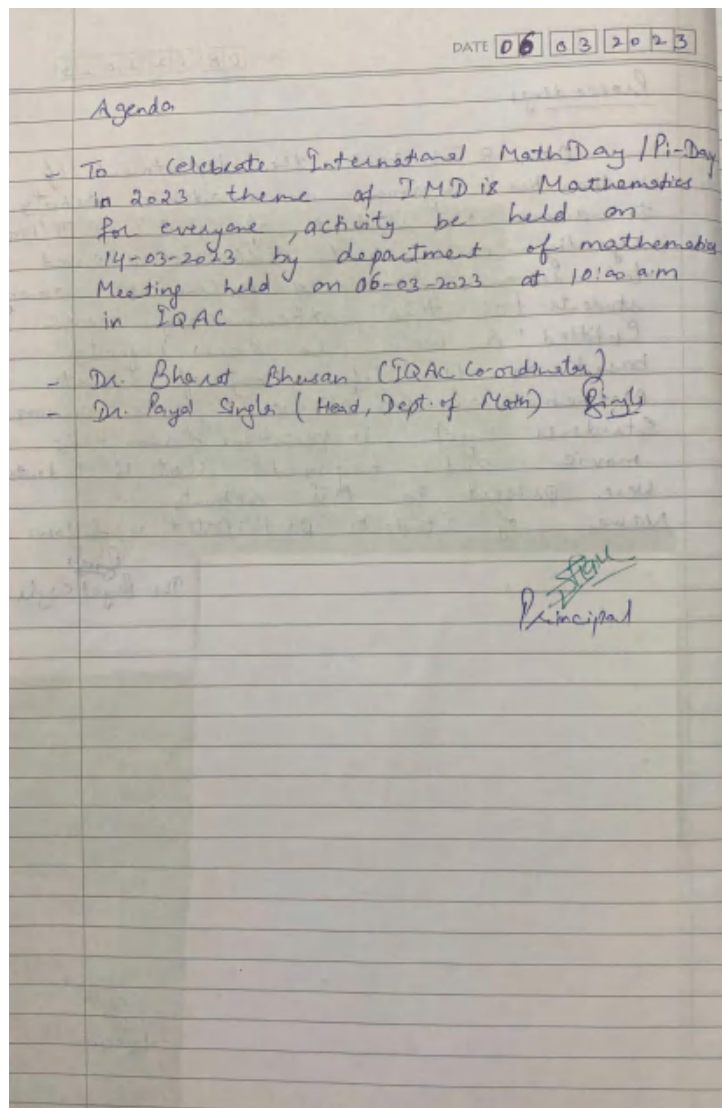 DATE 06 03 2023
Agenda
- To celebrate International Math Day / Pi-Day
in 2023 theme of IMD is Mathematics
for everyone, activity be held on
14-03-2023 by department of mathematics
Meeting held on 06-03-2023 at 10:00 a.m
in IQAC
- Dr. Bharat Bhusan (IQAC Co-ordinator)
- Dr. Payal Singla (Head, Dept. of Math) Singla
Principal